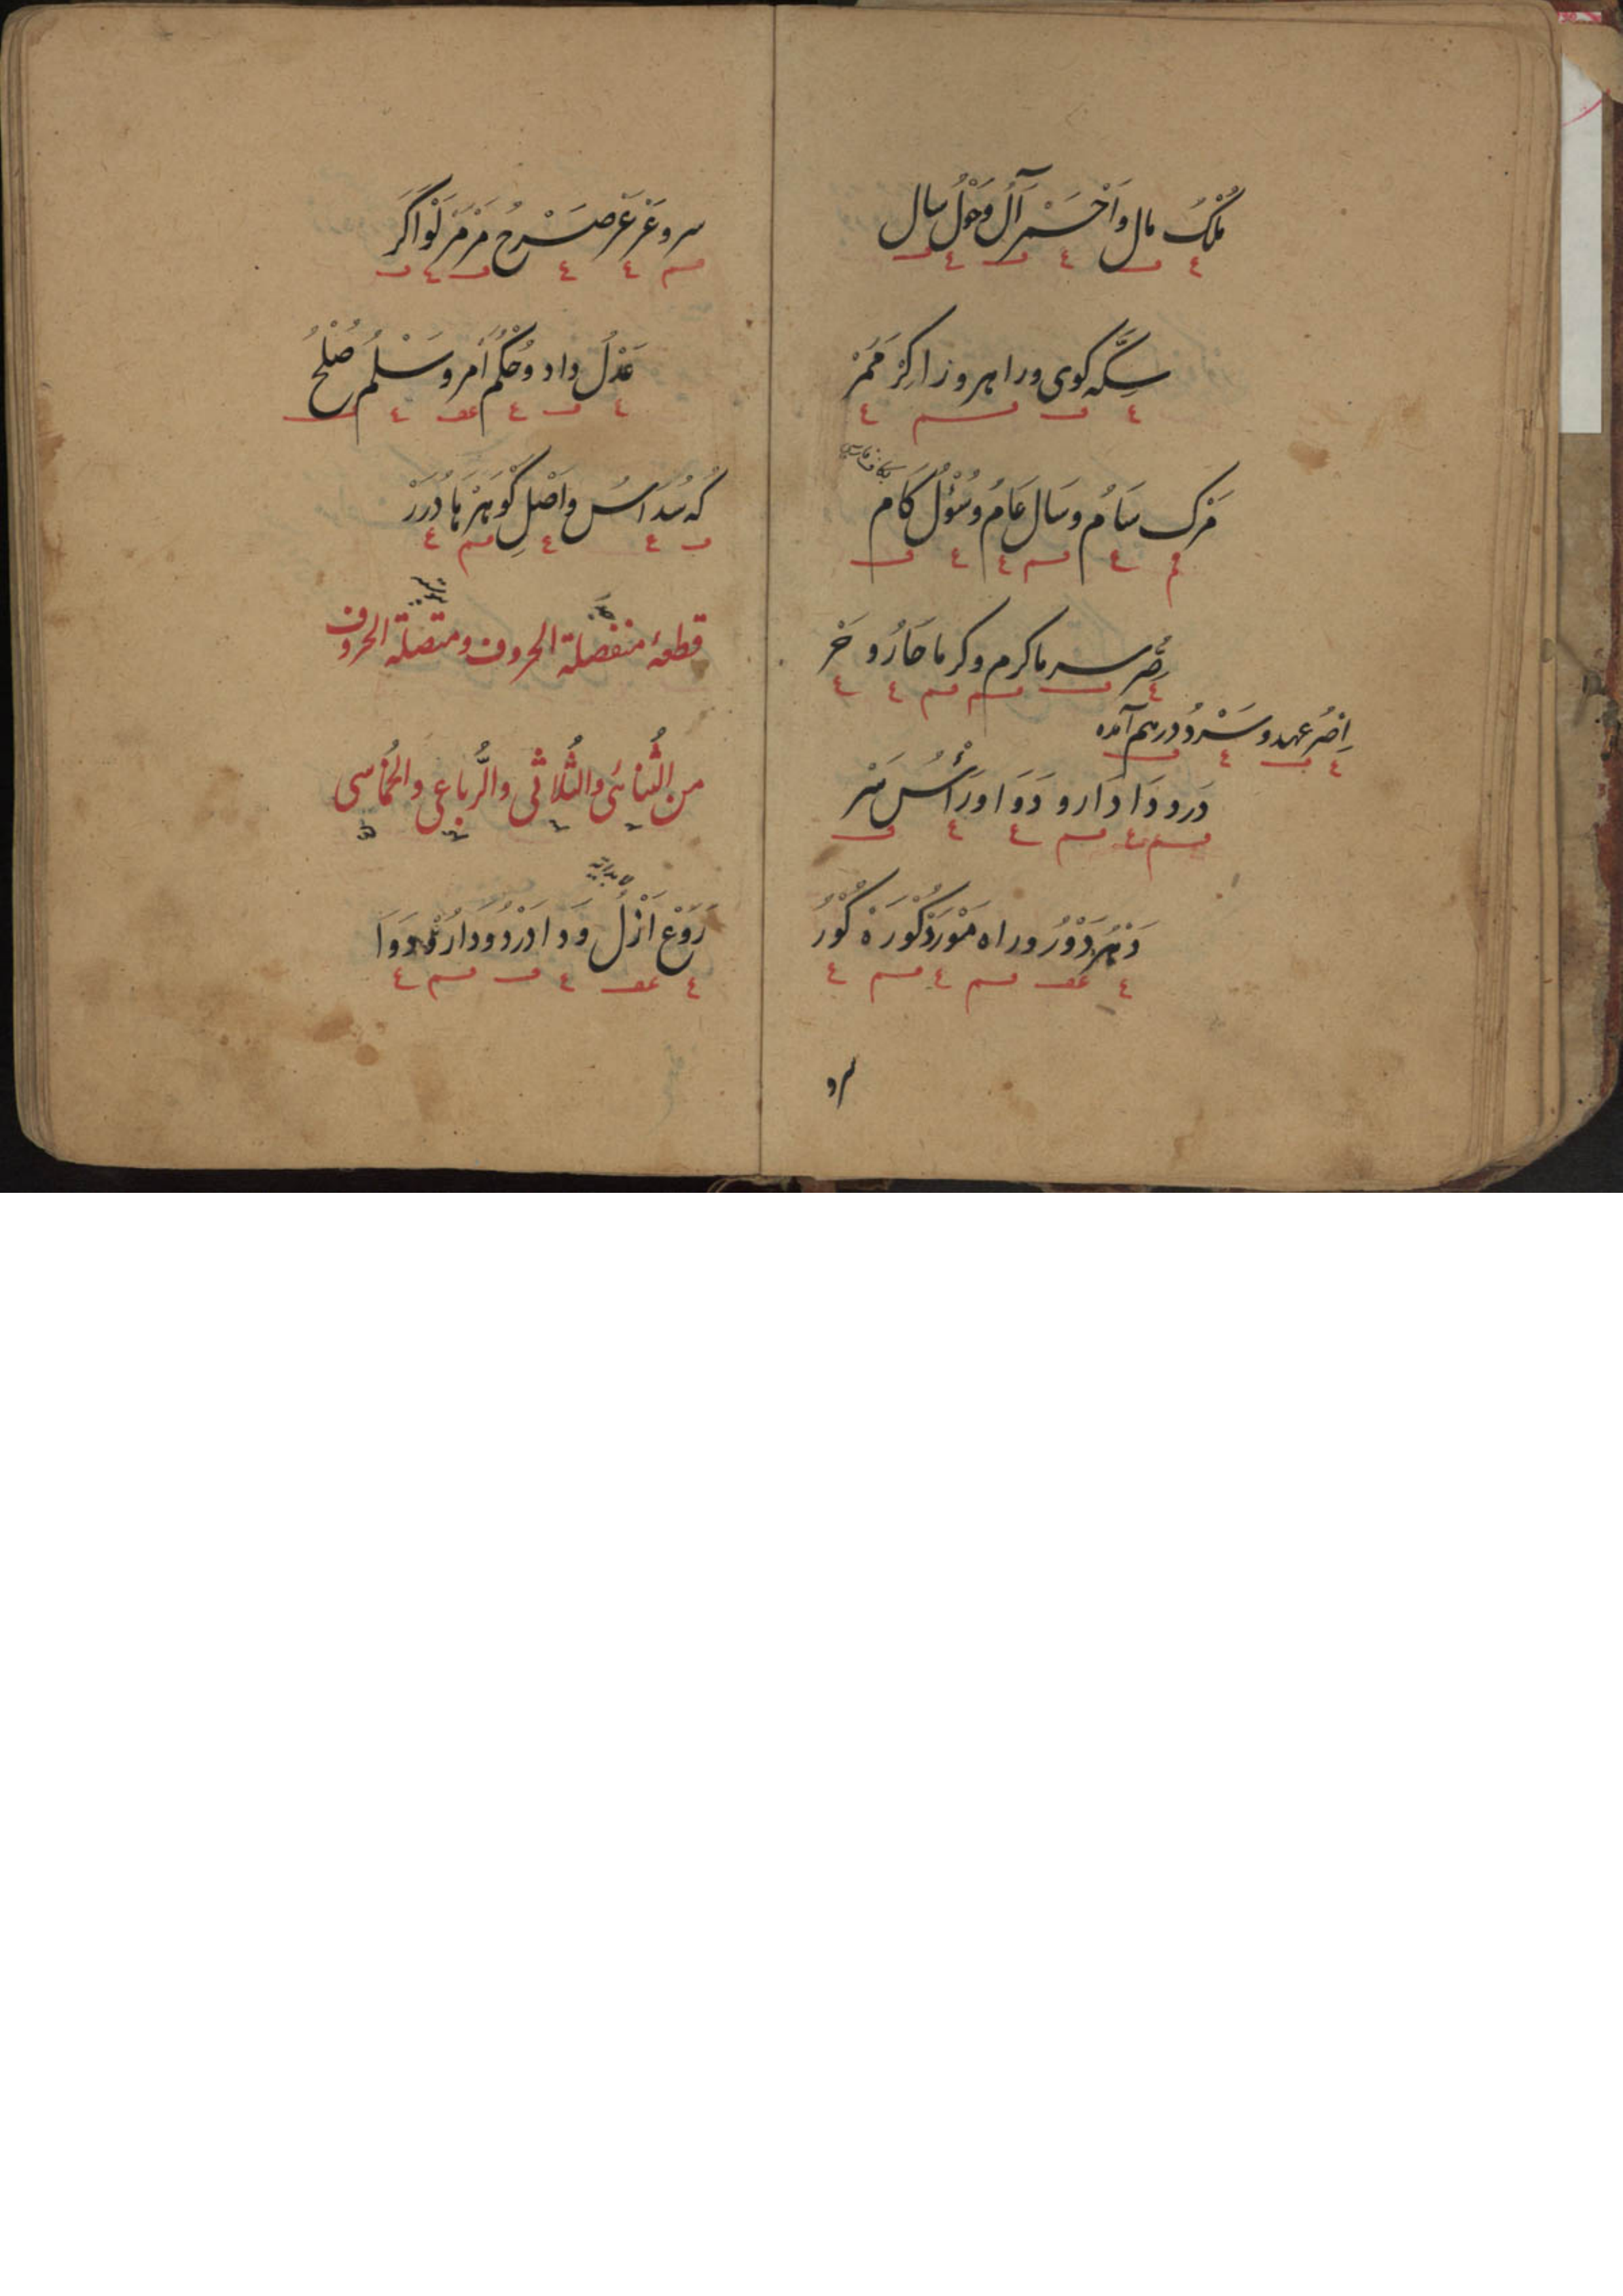 مُلْکُ مال وَاَحْمَرْ آل وحَوْلُ سال
سِکَّه کوی ورا هروزا کِرْ مَمَرْ
بکاف فارسی
مَرْک سَامُ و سَال عَامُ و سُؤْلُ کَام
صِرُّ سرما کرم و کرما حَارُ و خَرْ
اِصْرُ عهد و سَرْدُ درهم آمده
دَرو دَا دَارو دَوَا و رَأْسُ سَرْ
دَهْرُ دَوْرُ و راه مَوْرَدْ کُورَهْ کُوْرُ
سرو
سرو عَرْ عَرْ صَرْحُ مَرْمَرْ لَوْ اَکَرْ
عَدْلُ داد و حُکْمُ اَمر و سَلْمُ صُلْحُ
کُه سُدْ اُسُّ و اَصْلِ کَوْهَرْهَا دُرَرْ
قطعهٔ منفصلة الحروف ومتصلة الحروف
من الثُّنائی والثُّلاثی والرُّباعی والخُماسی
رَوْع اَزْلُ وَدا دَرْدُ و دَارُو دَوَا